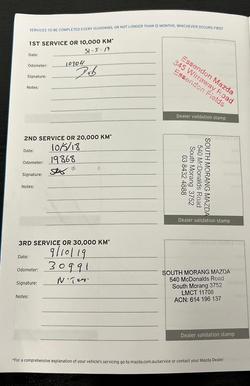 SERVICES TO BE COMPLETED EVERY 10,000KMS, OR NOT LONGER THAN 12 MONTHS, WHICHEVER OCCURS FIRST
1ST SERVICE OR 10,000 KM*
Date:
Odometer:
Signature:
Notes:
Essendon Mazda
345 Wirraway Road
Essendon Fields
Dealer validation stamp
2ND SERVICE OR 20,000 KM*
Date: 10/5/18
Odometer: 19868
Signature:
Notes:
SOUTH MORANG MAZDA
540 McDonalds Road
South Morang 3752
03 8432 4888
Dealer validation stamp
3RD SERVICE OR 30,000 KM*
Date: 9/10/19
Odometer: 30991
Signature:
Notes:
SOUTH MORANG MAZDA
540 McDonalds Road
South Morang 3752
LMCT 11708
ACN: 614 196 137
Dealer validation stamp
*For a comprehensive explanation of your vehicle's servicing go to mazda.com.au/service or contact your Mazda Dealer.